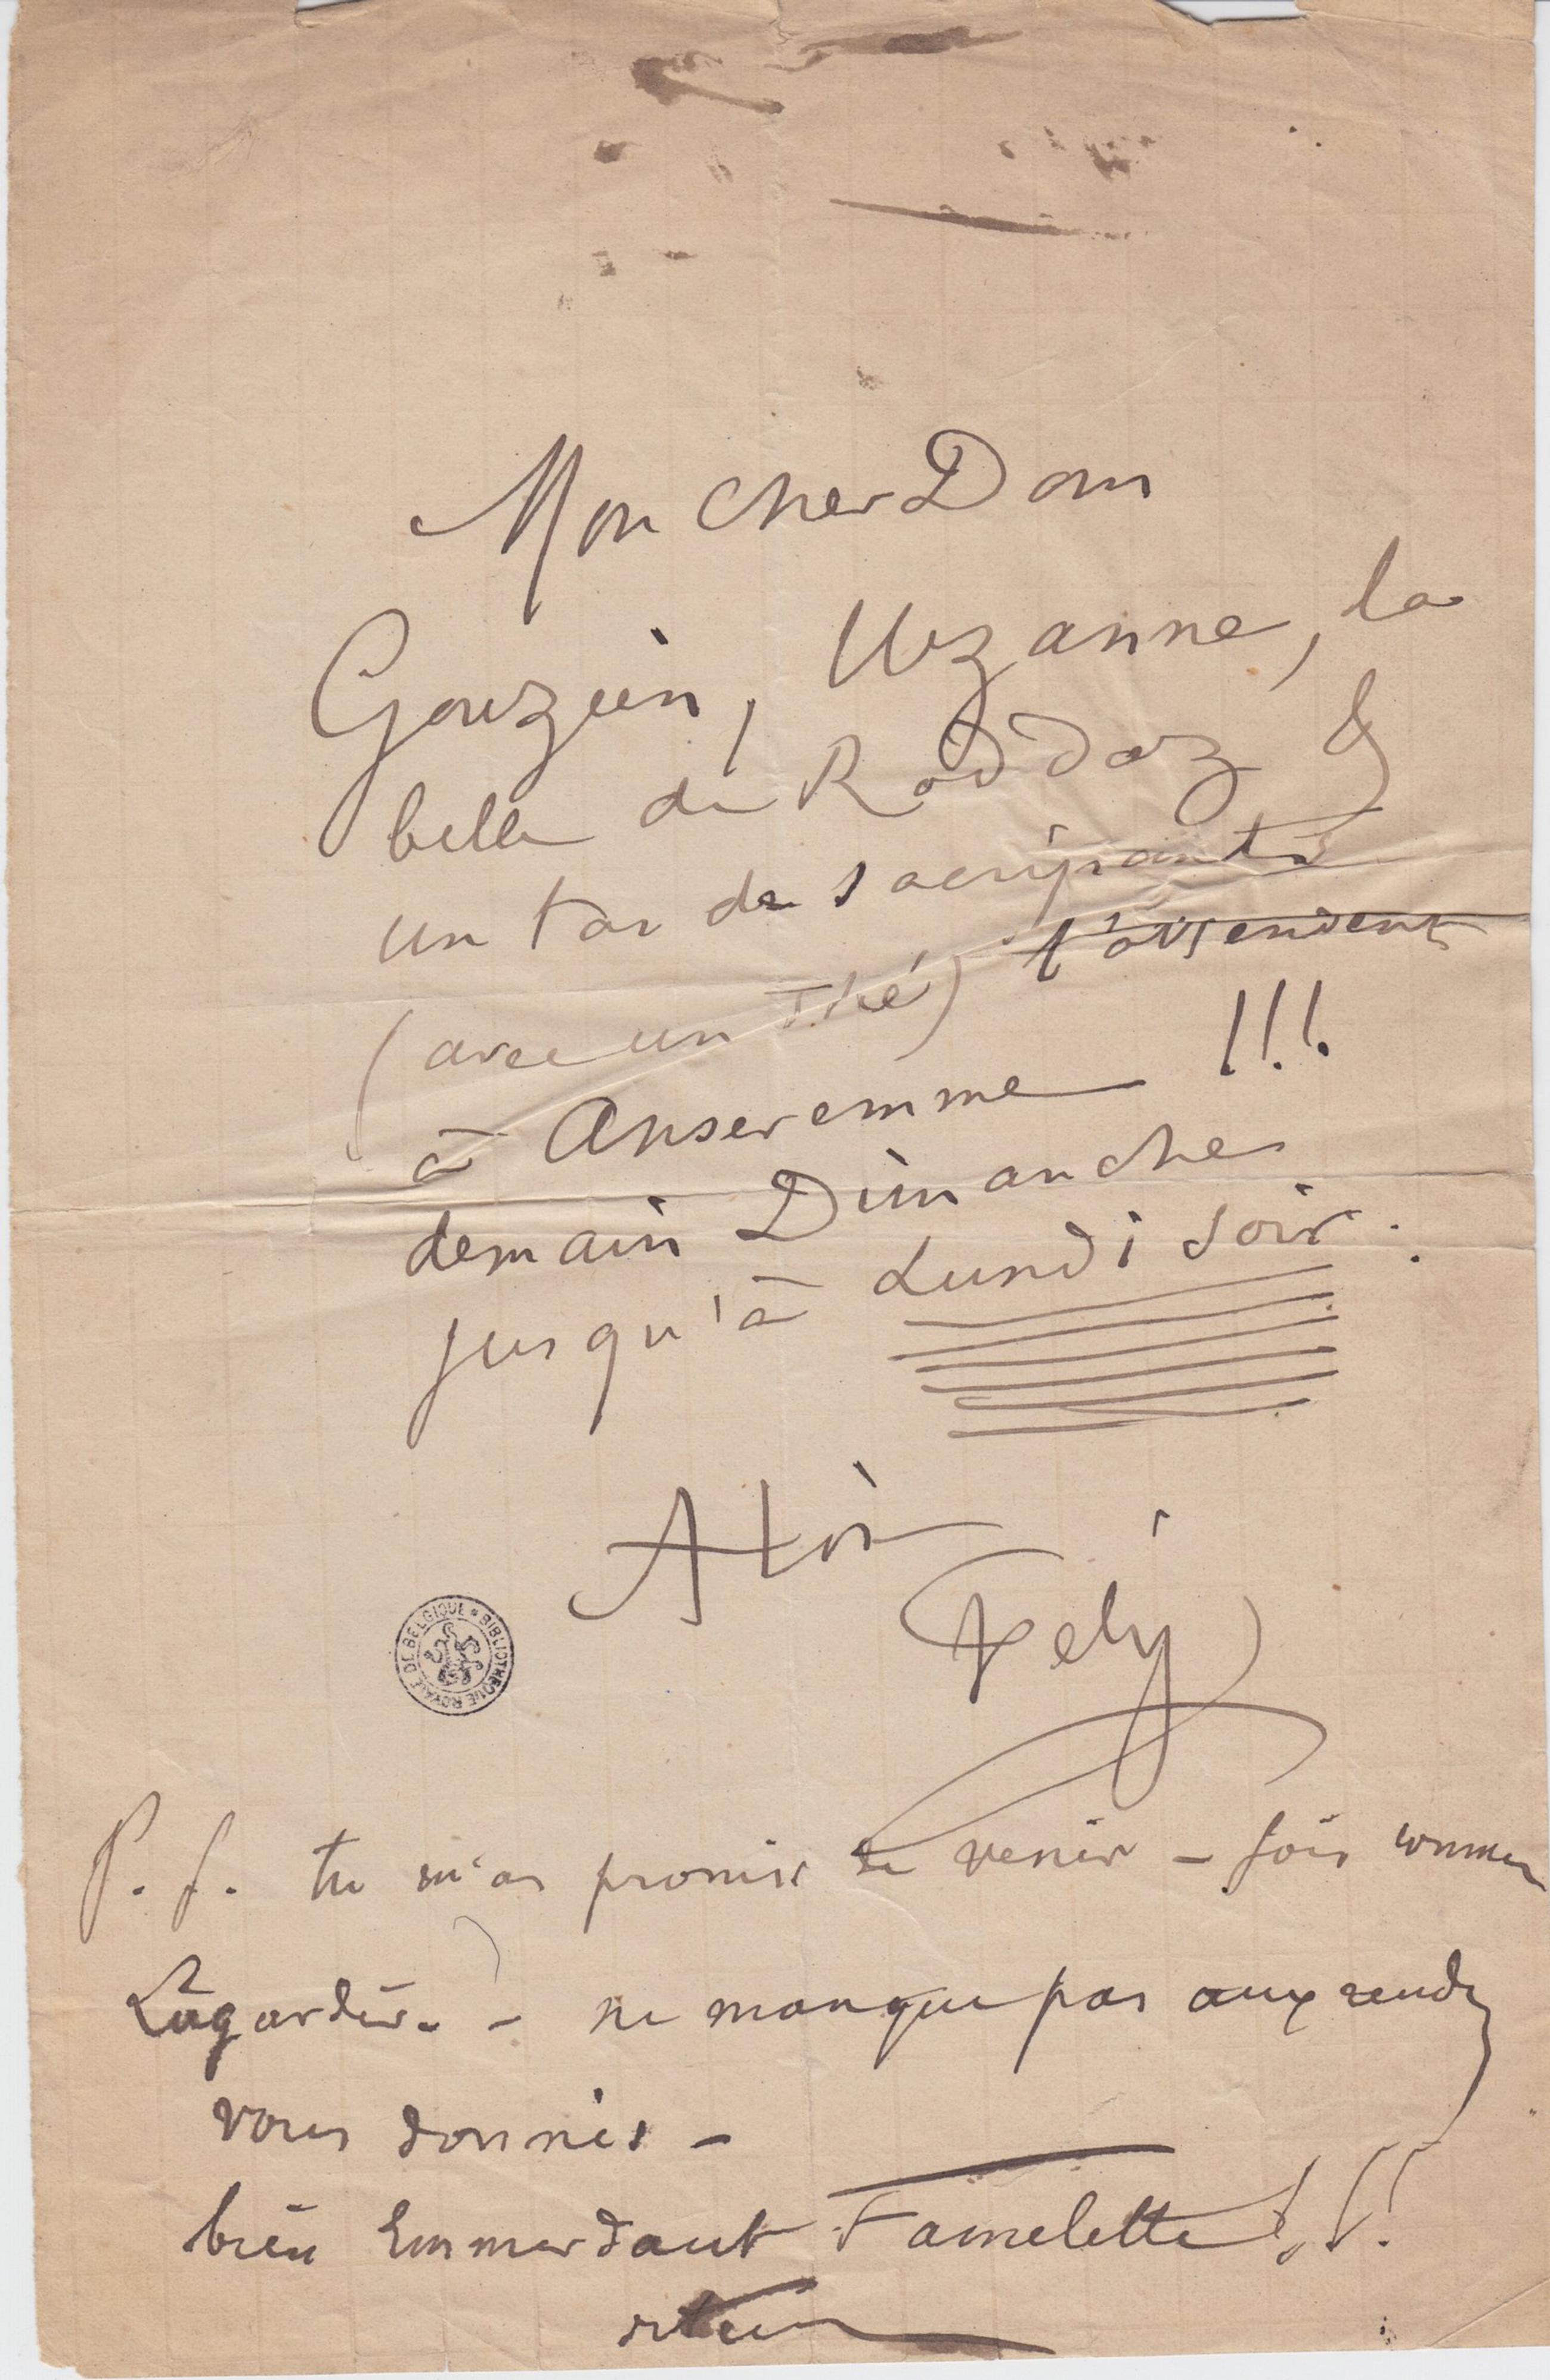 Mon cher Dom
Gouzien, Uzanne, la
belle de Roddaz &
un tas de sacripants
(avec un Thé) t'attendent
à Anseremme !!!
demain Dimanche
jusqu'à Lundi soir.
A toi
Fély
BIBLIOTHEQUE ROYALE DE BELGIQUE
P.S. tu m'as promis de venir – sois comme
Lagardère – ne manque pas aux rendez
vous donnés –
bien Emmerdant Famelette !!!